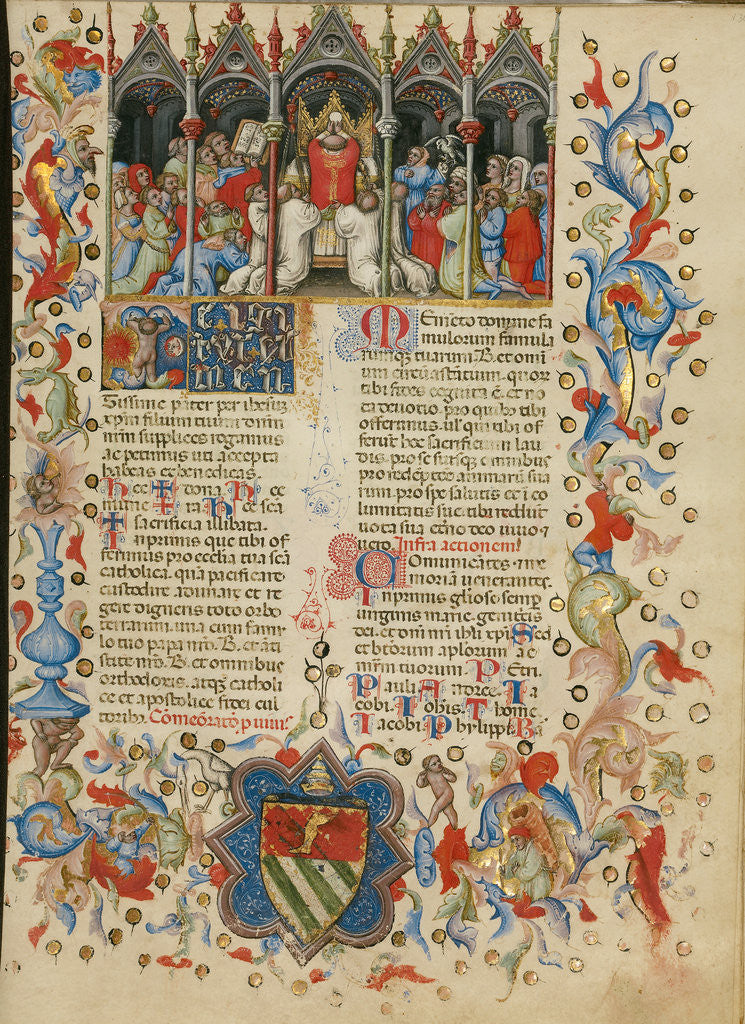 Te igi
tur cle
men
tissime pater per ihesuz
xpm filium tuum domi
num supplices rogamus
ac petimus uti accepta
habeas et benedicas
hec ✝ dona. Hec
mune ✝ ra. Hec scā
✝ sacrificia illibata.
In primis que tibi of
ferimus pro ecclia tua scā
catholica. quā pacificare
custodire adunare et re
gere digneris toto orbe
terrarum. una cum famu
lo tuo papa nrō. B. et āti
stite nrō. B. et omnibus
orthodoxis. atqȝ catholi
ce et apostolice fidei cul
toribȝ. Comēoratō p uiuis
Memēto domine fa
mulorum famula
rumqȝ tuarum. B. et omī
um circūastātium. quor
tibi fides cognita ē. et no
ta deuotio. pro quibȝ tibi
offerimus. uĺ qui tibi of
ferūt hoc sacrificium lau
dis. pro se suisqȝ omnibus
pro redēptōe animarū sua
rum. pro spe salutis et ī co
lumitatis sue. tibi reddūt
uota sua etno deo uiuo et
uero. Infra actionem
Comunicātes. et me
moriā uenerantes.
In primis gliose semper
uirginis marie. genitricis
dei. et dnī nrī ihū xpī. Sed
et btōrum aplorum ac
mrm tuorum. Petri.
Pauli. Andree. Ia
cobi. Iohis. Thome.
Iacobi. Phylippi. Ba